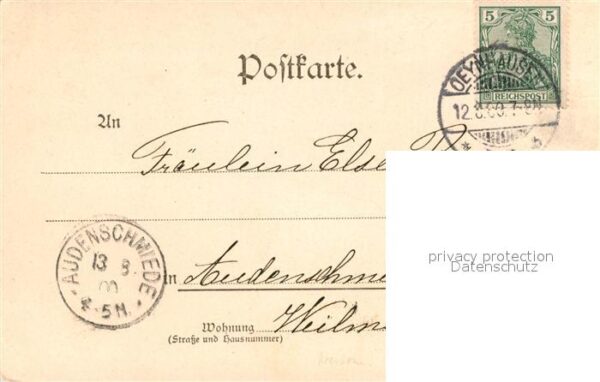 5
REICHSPOST
OEYNHAUSEN
12.8.00.7-8N.
Postkarte.
An
Fräulein Else
privacy protection
Datenschutz
AUDENSCHMIEDE
13 8.
00
4-5N.
in Audenschmie
Wohnung
(Straße und Hausnummer)
Weilm